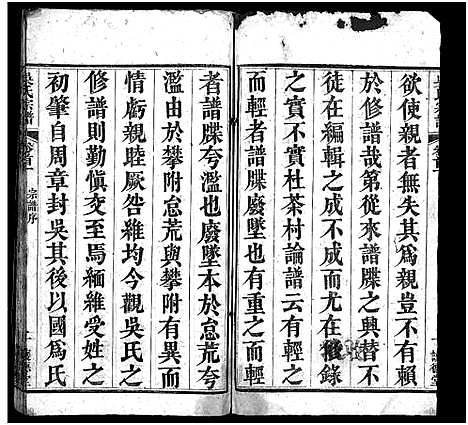 欲使親者無失其為親豈不有賴
於修譜哉第從來譜牒之興替不
徒在編輯之成不成而尤在錄
之實不實杜茶村論譜云有輕之
而輕者譜牒廢墜是也有重之而輕
者譜牒夸濫也廢墜本於怠荒夸
濫由於攀附怠荒與攀附有異而
情虧親睦厥咎維均今觀吳氏之
修譜則勤慎交至焉緬維受姓之
初肇自周章封吳其後以國為氏
吳氏宗譜
卷首
宗譜序